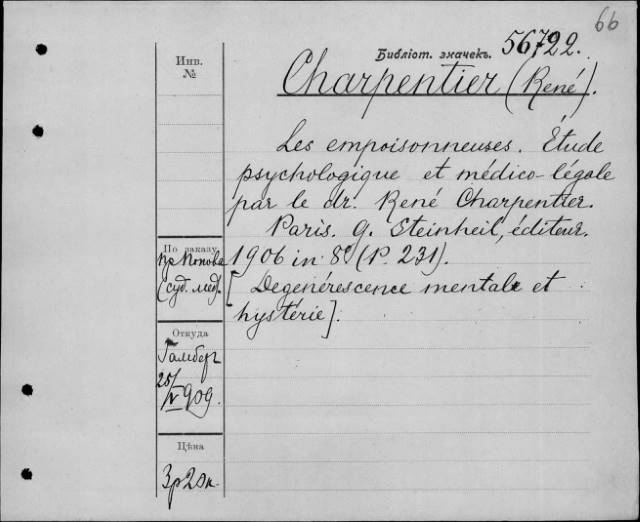 66
Библіот. значекъ. 56722.
Инв.
№
Charpentier (René).
Les empoisonneuses. Étude
psychologique et médico-légale
par le dr. René Charpentier.
Paris. G. Steinheil, éditeur.
1906 in 8º (P. 231).
[Degenérescence mentale et
hystérie].
По заказу
пр. Попова
(суд. мед).
Откуда
Гамбер
25/V 909.
Цѣна
3р 20к.